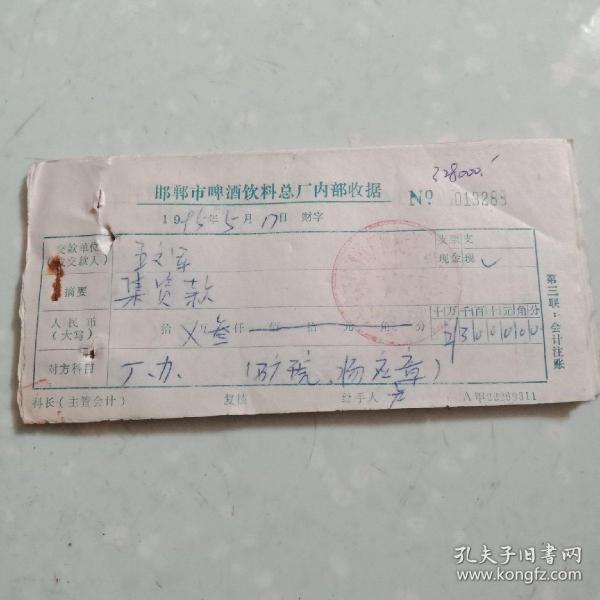 328000.
邯郸市啤酒饮料总厂内部收据 No 013289
1995年5月17日 财字
交款单位(或交款人) 支票 支
现金 现 ✓
摘要 集资款
人民币(大写) 拾 万 叁 仟 佰 拾 元 角 分 十万千百十元角分
300000
对方科目 厂办 (矿院、杨
科长(主管会计) 复核 经手人 A甲22269311
第三联：会计注账
孔夫子旧书网
www.kongfz.com